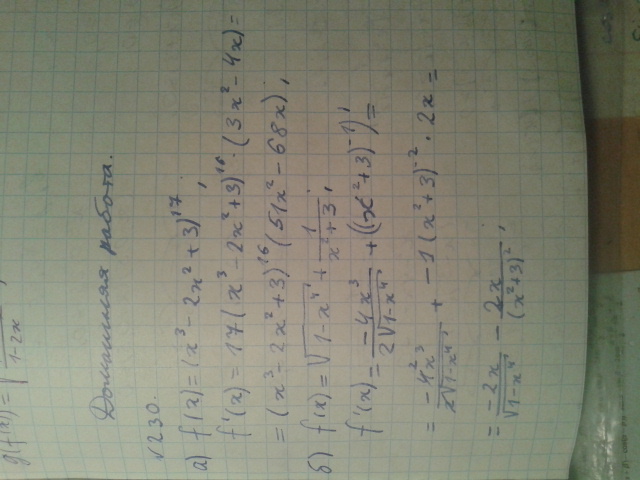 g(f(x)) = √ 1-2x ,
Домашняя работа.
√230.
а) f(x) = (x³ - 2x² + 3)¹⁷,
f'(x) = 17(x³ - 2x² + 3)¹⁶ · (3x² - 4x) =
= (x³ - 2x² + 3)¹⁶ (51x² - 68x),
б) f(x) = √1-x⁴ + 1/(x² + 3),
f'(x) = -4x³/2√1-x⁴ + ((x² + 3)⁻¹)' =
= -4x³/2√1-x⁴ + -1(x² + 3)⁻² · 2x =
= -2x/√1-x⁴ - 2x/(x²+3)²,